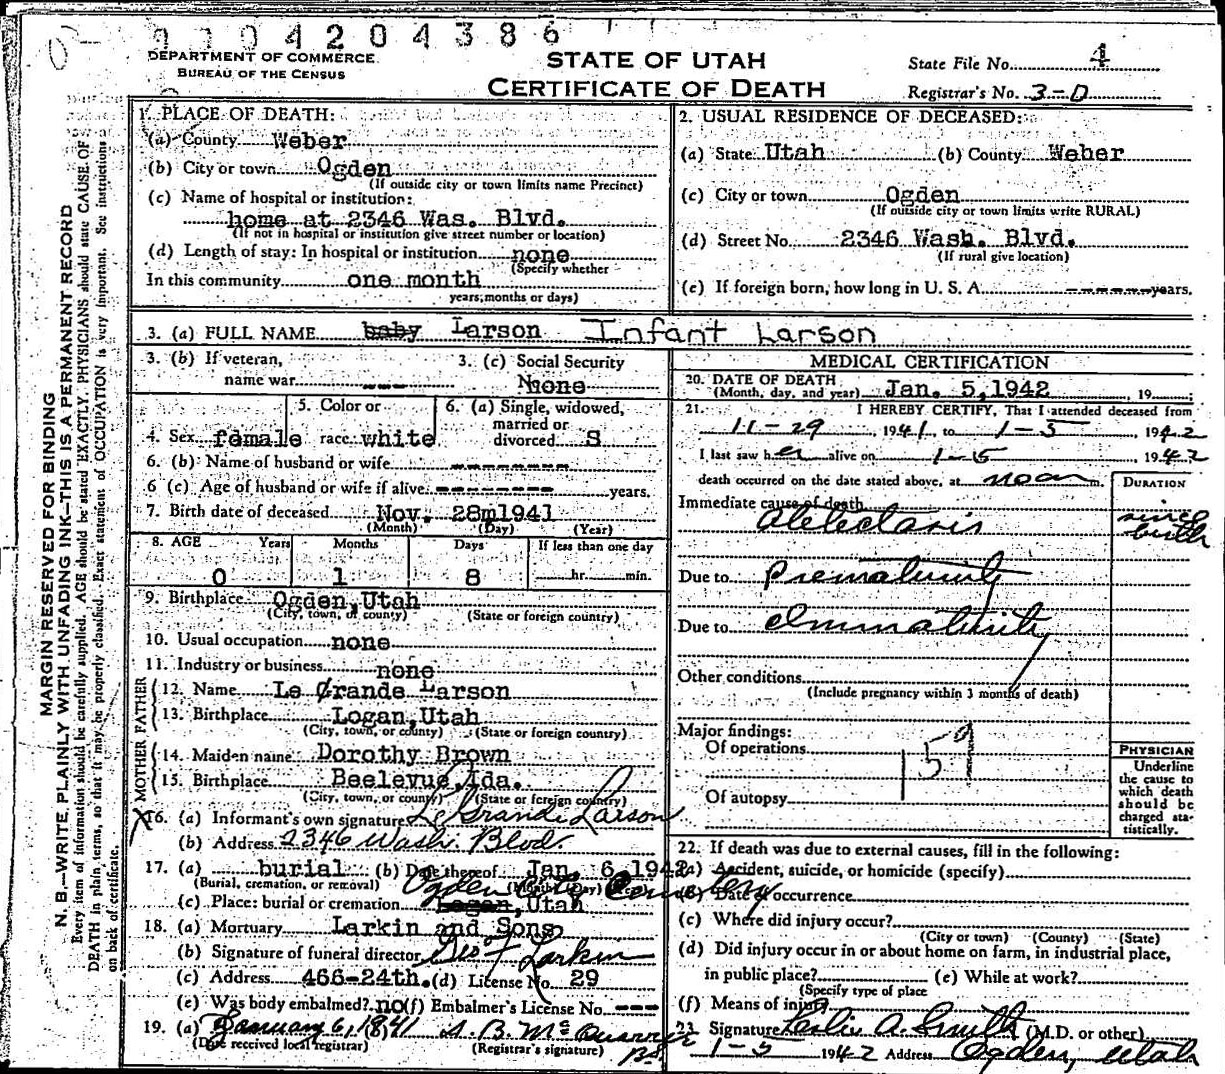 0 0 0 4 2 0 4 3 8 6
DEPARTMENT OF COMMERCE
BUREAU OF THE CENSUS
STATE OF UTAH
CERTIFICATE OF DEATH
State File No. 4
Registrar's No. 3-D
MARGIN RESERVED FOR BINDING
N. B.—WRITE PLAINLY WITH UNFADING INK—THIS IS A PERMANENT RECORD
Every item of information should be carefully supplied. AGE should be stated EXACTLY. PHYSICIANS should state CAUSE OF
DEATH in plain terms, so that it may be properly classified. Exact statement of OCCUPATION is very important. See instructions
on back of certificate.
1. PLACE OF DEATH:
(a) County Weber
(b) City or town Ogden
(If outside city or town limits name Precinct)
(c) Name of hospital or institution:
home at 2346 Was. Blvd.
(If not in hospital or institution give street number or location)
(d) Length of stay: In hospital or institution none
(Specify whether
In this community one month
years, months or days)
2. USUAL RESIDENCE OF DECEASED:
(a) State Utah (b) County Weber
(c) City or town Ogden
(If outside city or town limits write RURAL)
(d) Street No. 2346 Wash. Blvd.
(If rural give location)
(e) If foreign born, how long in U. S. A. ------ years.
3. (a) FULL NAME baby Larson Infant Larson
3. (b) If veteran, 3. (c) Social Security
name war --- No. none
4. Sex female 5. Color or race white 6. (a) Single, widowed, married or divorced S
6. (b) Name of husband or wife --------
6 (c) Age of husband or wife if alive -------- years.
7. Birth date of deceased Nov. 28m1941
(Month) (Day) (Year)
8. AGE Years Months Days If less than one day
0 1 8 hr. min.
9. Birthplace Ogden,Utah
(City, town, or county) (State or foreign country)
10. Usual occupation none
11. Industry or business none
FATHER
12. Name Le Grande Larson
13. Birthplace Logan,Utah
(City, town, or county) (State or foreign country)
MOTHER
14. Maiden name Dorothy Brown
15. Birthplace Beelevue,Ida.
(City, town, or county) (State or foreign country)
X 16. (a) Informant's own signature Le Grande Larson
(b) Address 2346 Wash. Blvd.
17. (a) burial (b) Date thereof Jan. 6, 1942
(Burial, cremation, or removal) (Month) (Day) (Year)
Ogden City Cemetery
(c) Place: burial or cremation Logan,Utah
18. (a) Mortuary Larkin and Sons
(b) Signature of funeral director Geo T Larkin
(c) Address 466-24th. (d) License No. 29
(e) Was body embalmed? no (f) Embalmer's License No. ---
19. (a) January 6, 1941 (b)
(Date received local registrar) (Registrar's signature)
MEDICAL CERTIFICATION
20. DATE OF DEATH
(Month, day, and year) Jan. 5,1942 , 19
21. I HEREBY CERTIFY, That I attended deceased from
11-29 , 1941, to 1-5 , 1942
I last saw her alive on 1-5 , 1942
death occurred on the date stated above, at noon m.
DURATION
Immediate cause of death
atelectasis since birth
Due to prematurity
Due to Immaturity
Other conditions
(Include pregnancy within 3 months of death)
Major findings:
Of operations
159
Of autopsy
PHYSICIAN
Underline
the cause to
which death
should be
charged sta-
tistically.
22. If death was due to external causes, fill in the following:
(a) Accident, suicide, or homicide (specify)
(b) Date of occurrence
(c) Where did injury occur?
(City or town) (County) (State)
(d) Did injury occur in or about home on farm, in industrial place,
in public place? (e) While at work?
(Specify type of place
(f) Means of injury
23. Signature Leslie A. Smith (M.D. or other)
1-5 1942 Address Ogden, Utah